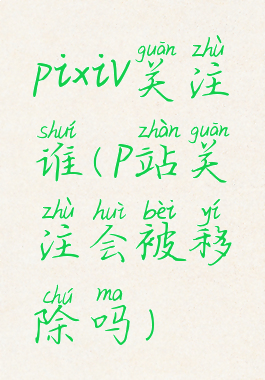 guān zhù
pixiv关注
shuí zhàn guān
谁(P站关
zhù huì bèi yí
注会被移
chú ma
除吗)